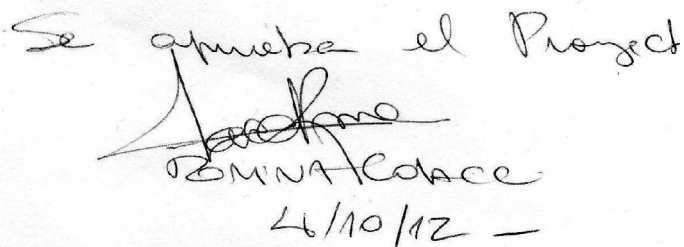 Se aprueba el Proyect
ROMINA COLACC
4/10/12 —